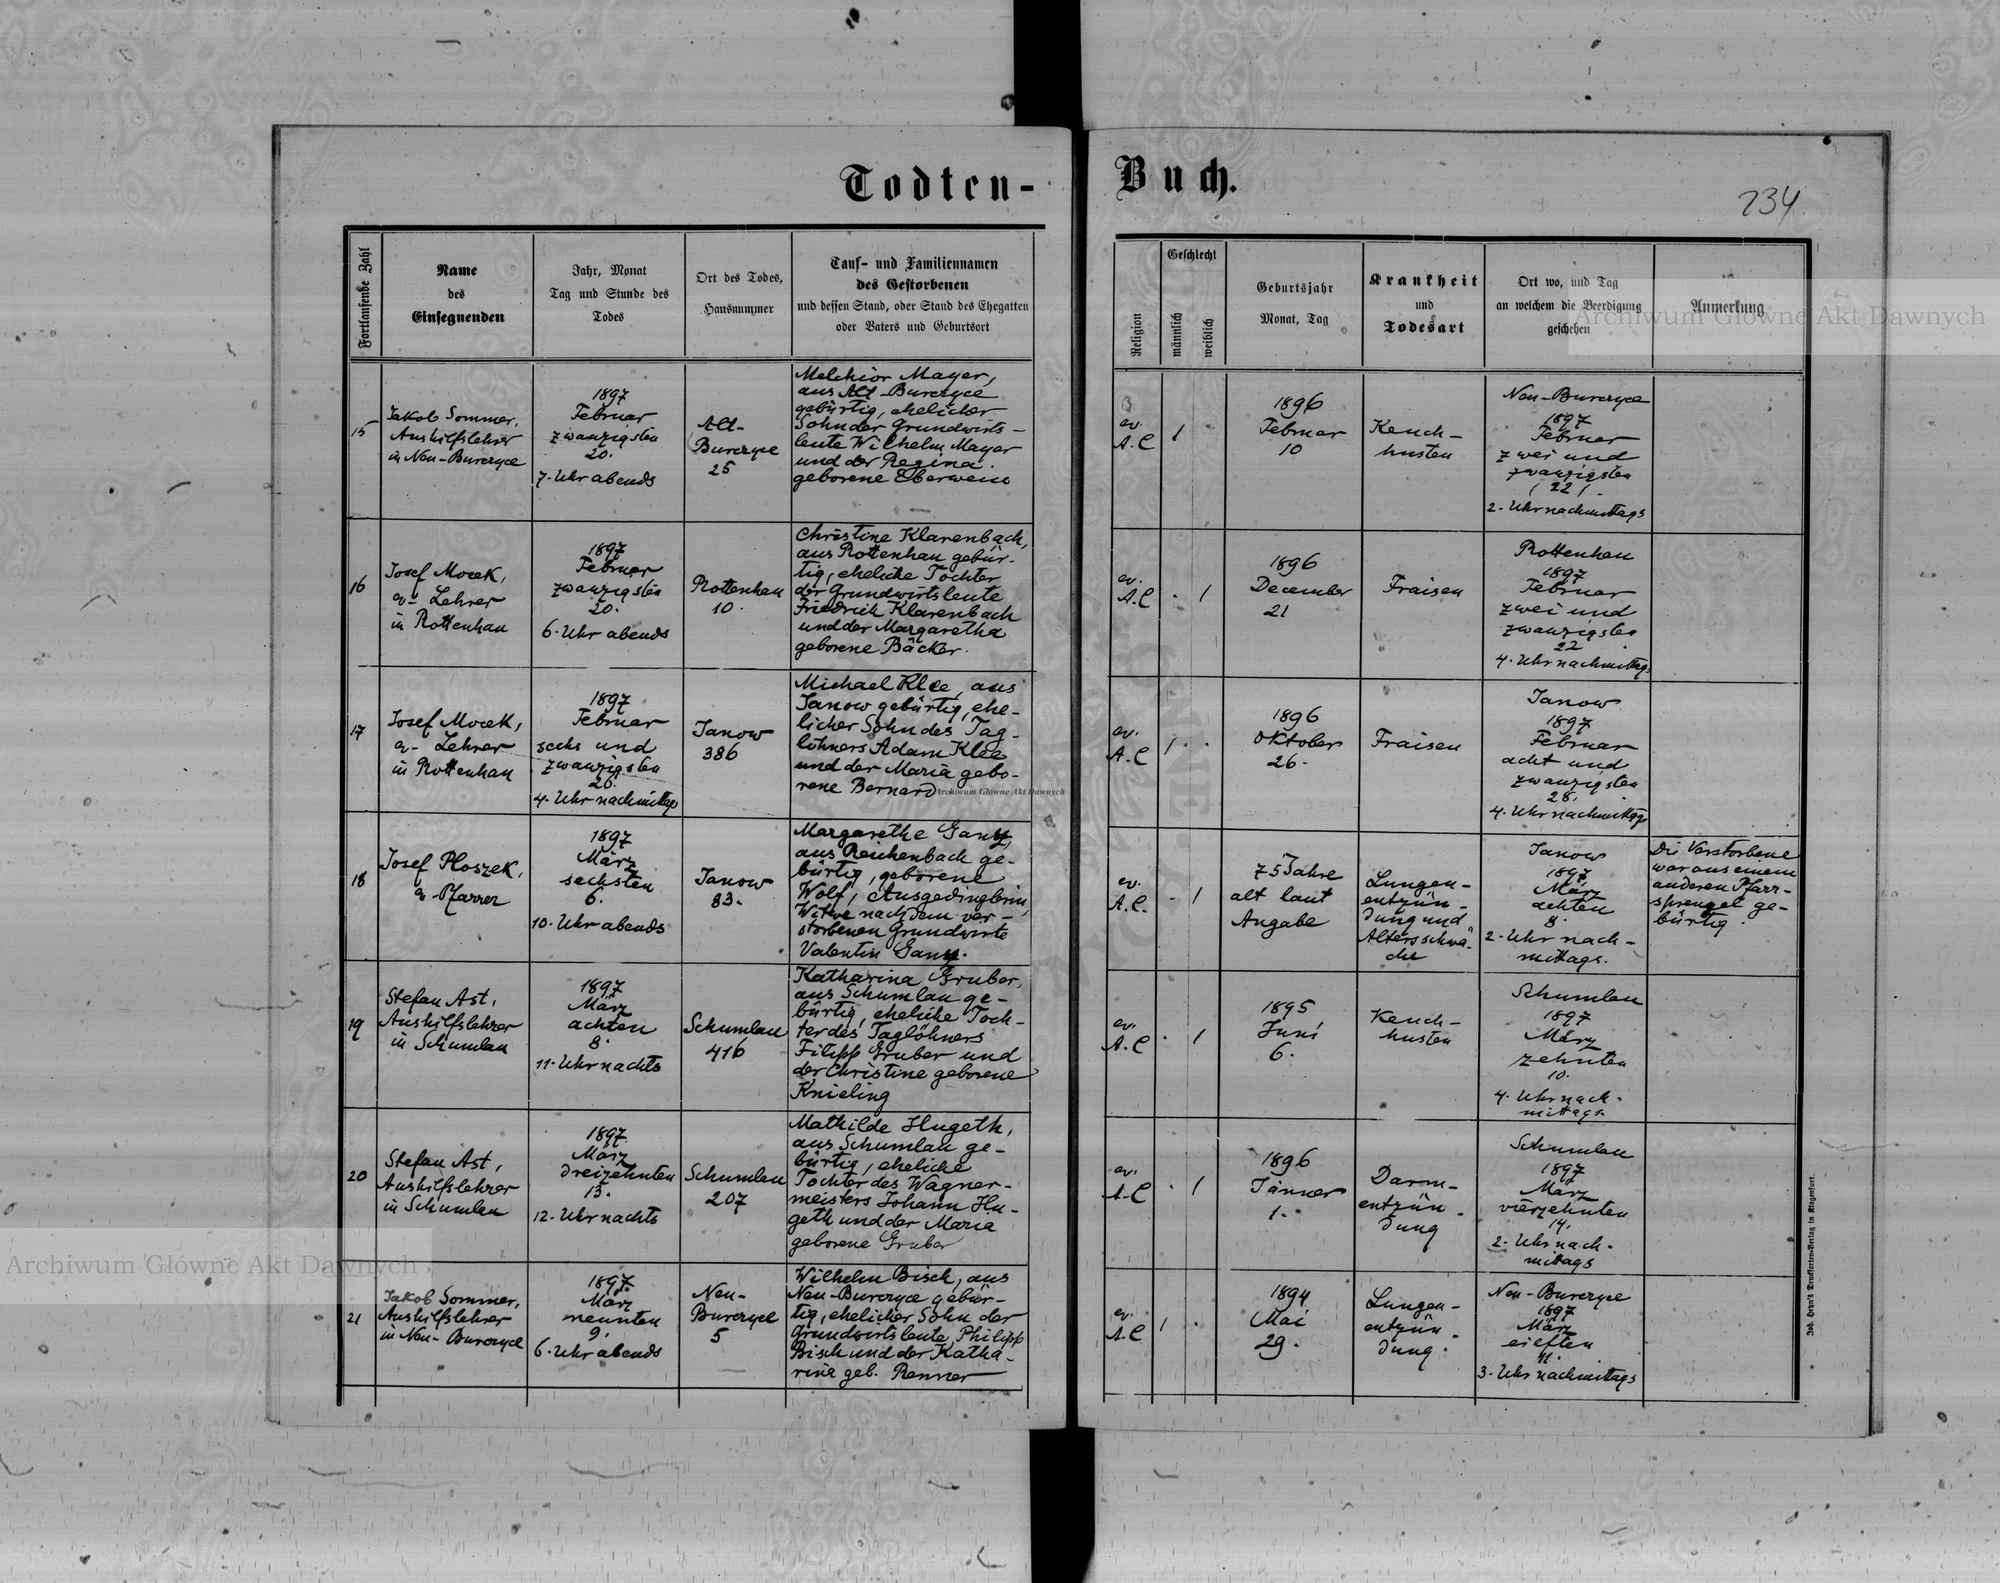 Todten-
Buch.
234
Fortlaufende Zahl
Name
des
Einsegnenden
Jahr, Monat
Tag und Stunde des
Todes
Ort des Todes,
Hausnummer
Tauf- und Familiennamen
des Gestorbenen
und dessen Stand, oder Stand des Ehegatten
oder Vaters und Geburtsort
Religion
Geschlecht
männlich
weiblich
Geburtsjahr
Monat, Tag
Krankheit
und
Todesart
Ort wo, und Tag
an welchem die Beerdigung
geschehen
Anmerkung
15
Jakob Sommer,
Aushilfslehrer
in Neu-Burczyce
1897
Februar
zwanzigsten
20.
7. Uhr abends
Alt-
Burczyce
25
Melchior Mayer,
aus Alt-Burczyce
gebürtig, ehelicher
Sohn der Grundwirts-
leute Wilhelm Mayer
und der Regina
geborene Eberwein
ev.
A.C
1
1896
Februar
10
Keuch-
husten
Neu-Burczyce
1897
Februar
zwei und
zwanzigsten
(22)
2. Uhr nachmittags
16
Josef Mocek,
ev. Lehrer
in Rottenhan
1897
Februar
zwanzigsten
20.
6. Uhr abends
Rottenhan
10.
Christine Klarenbach,
aus Rottenhan gebür-
tig, eheliche Tochter
der Grundwirtsleute
Friedrich Klarenbach
und der Margaretha
geborene Bäcker.
ev.
A.C
. 1
1896
December
21
Fraisen
Rottenhan
1897
Februar
zwei und
zwanzigsten
22.
4. Uhr nachmittags
17
Josef Mocek,
ev. Lehrer
in Rottenhan
1897
Februar
sechs und
zwanzigsten
26.
4. Uhr nachmittags
Janow
386
Michael Klee, aus
Janow gebürtig, ehe-
licher Sohn des Tag-
löhners Adam Klee
und der Maria gebo-
rene Bernard
ev.
A.C
1 .
1896
Oktober
26.
Fraisen
Janow
1897
Februar
acht und
zwanzigsten
28.
4. Uhr nachmittags
18
Josef Ploszek,
ev. Pfarrer
1897
März
sechsten
6.
10. Uhr abends
Janow
83.
Margarethe Gantz,
aus Reichenbach ge-
bürtig, geborene
Wolf, Ausgedinglerin,
Witwe nach dem ver-
storbenen Grundwirte
Valentin Gantz.
ev.
A.C.
. 1
75 Jahre
alt laut
Angabe
Lungen-
entzün-
dung und
Altersschwä-
che
Janow
1897
März
achten
8.
2. Uhr nach-
mittags.
Die Verstorbene
war aus einem
anderen Pfarr-
sprengel ge-
bürtig.
19
Stefan Ast,
Aushilfslehrer
in Schumlau
1897
März
achten
8.
11. Uhr nachts
Schumlau
416
Katharina Gruber,
aus Schumlau ge-
bürtig, eheliche Toch-
ter des Taglöhners
Filipp Gruber und
der Christine geborene
Knieling
ev.
A.C
. 1
1895
Juni
6.
Keuch-
husten
Schumlau
1897
März
zehnten
10.
4. Uhr nach-
mittags.
20
Stefan Ast,
Aushilfslehrer
in Schumlau
1897
März
dreizehnten
13.
12. Uhr nachts
Schumlau
207
Mathilde Hugeth,
aus Schumlau ge-
bürtig, eheliche
Tochter des Wagner-
meisters Johann Hu-
geth und der Maria
geborene Gruber
ev.
A.C
. 1
1896
Jänner
1.
Darm-
entzün-
dung
Schumlau
1897
März
vierzehnten
14.
2. Uhr nach-
mittags
21
Jakob Sommer,
Aushilfslehrer
in Neu-Burczyce
1897
März
neunten
9.
6. Uhr abends
Neu-
Burczyce
5
Wilhelm Bisch, aus
Neu-Burczyce gebür-
tig, ehelicher Sohn der
Grundwirtsleute Philipp
Bisch und der Katha-
rina geb. Renner
ev.
A.C
1 .
1894
Mai
29.
Lungen-
entzün-
dung.
Neu-Burczyce
1897
März
eilften
11.
3. Uhr nachmittags
Joh. Heyn's Drucksorten-Verlag in Klagenfurt.
Archiwum Główne Akt Dawnych
Archiwum Główne Akt Dawnych
Archiwum Główne Akt Dawnych